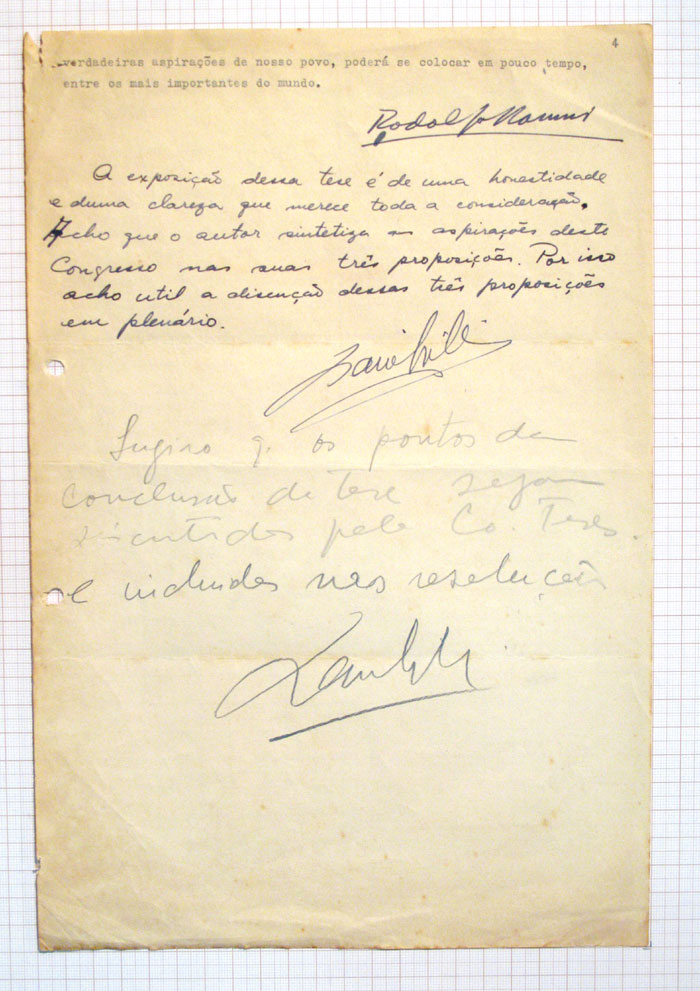 4
verdadeiras aspirações de nosso povo, poderá se colocar em pouco tempo,
entre os mais importantes do mundo.
Rodolfo Nanni
A exposição dessa tese é de uma honestidade
e duma clareza que merece toda a consideração.
Acho que o autor sintetiza as aspirações deste
Congresso nas suas três proposições. Por isso
acho util a discução dessas três proposições
em plenário.
Sugiro q. os pontos da
conclusão da tese sejam
discutidos pela Co. Teses.
e incluidos nas resoluções